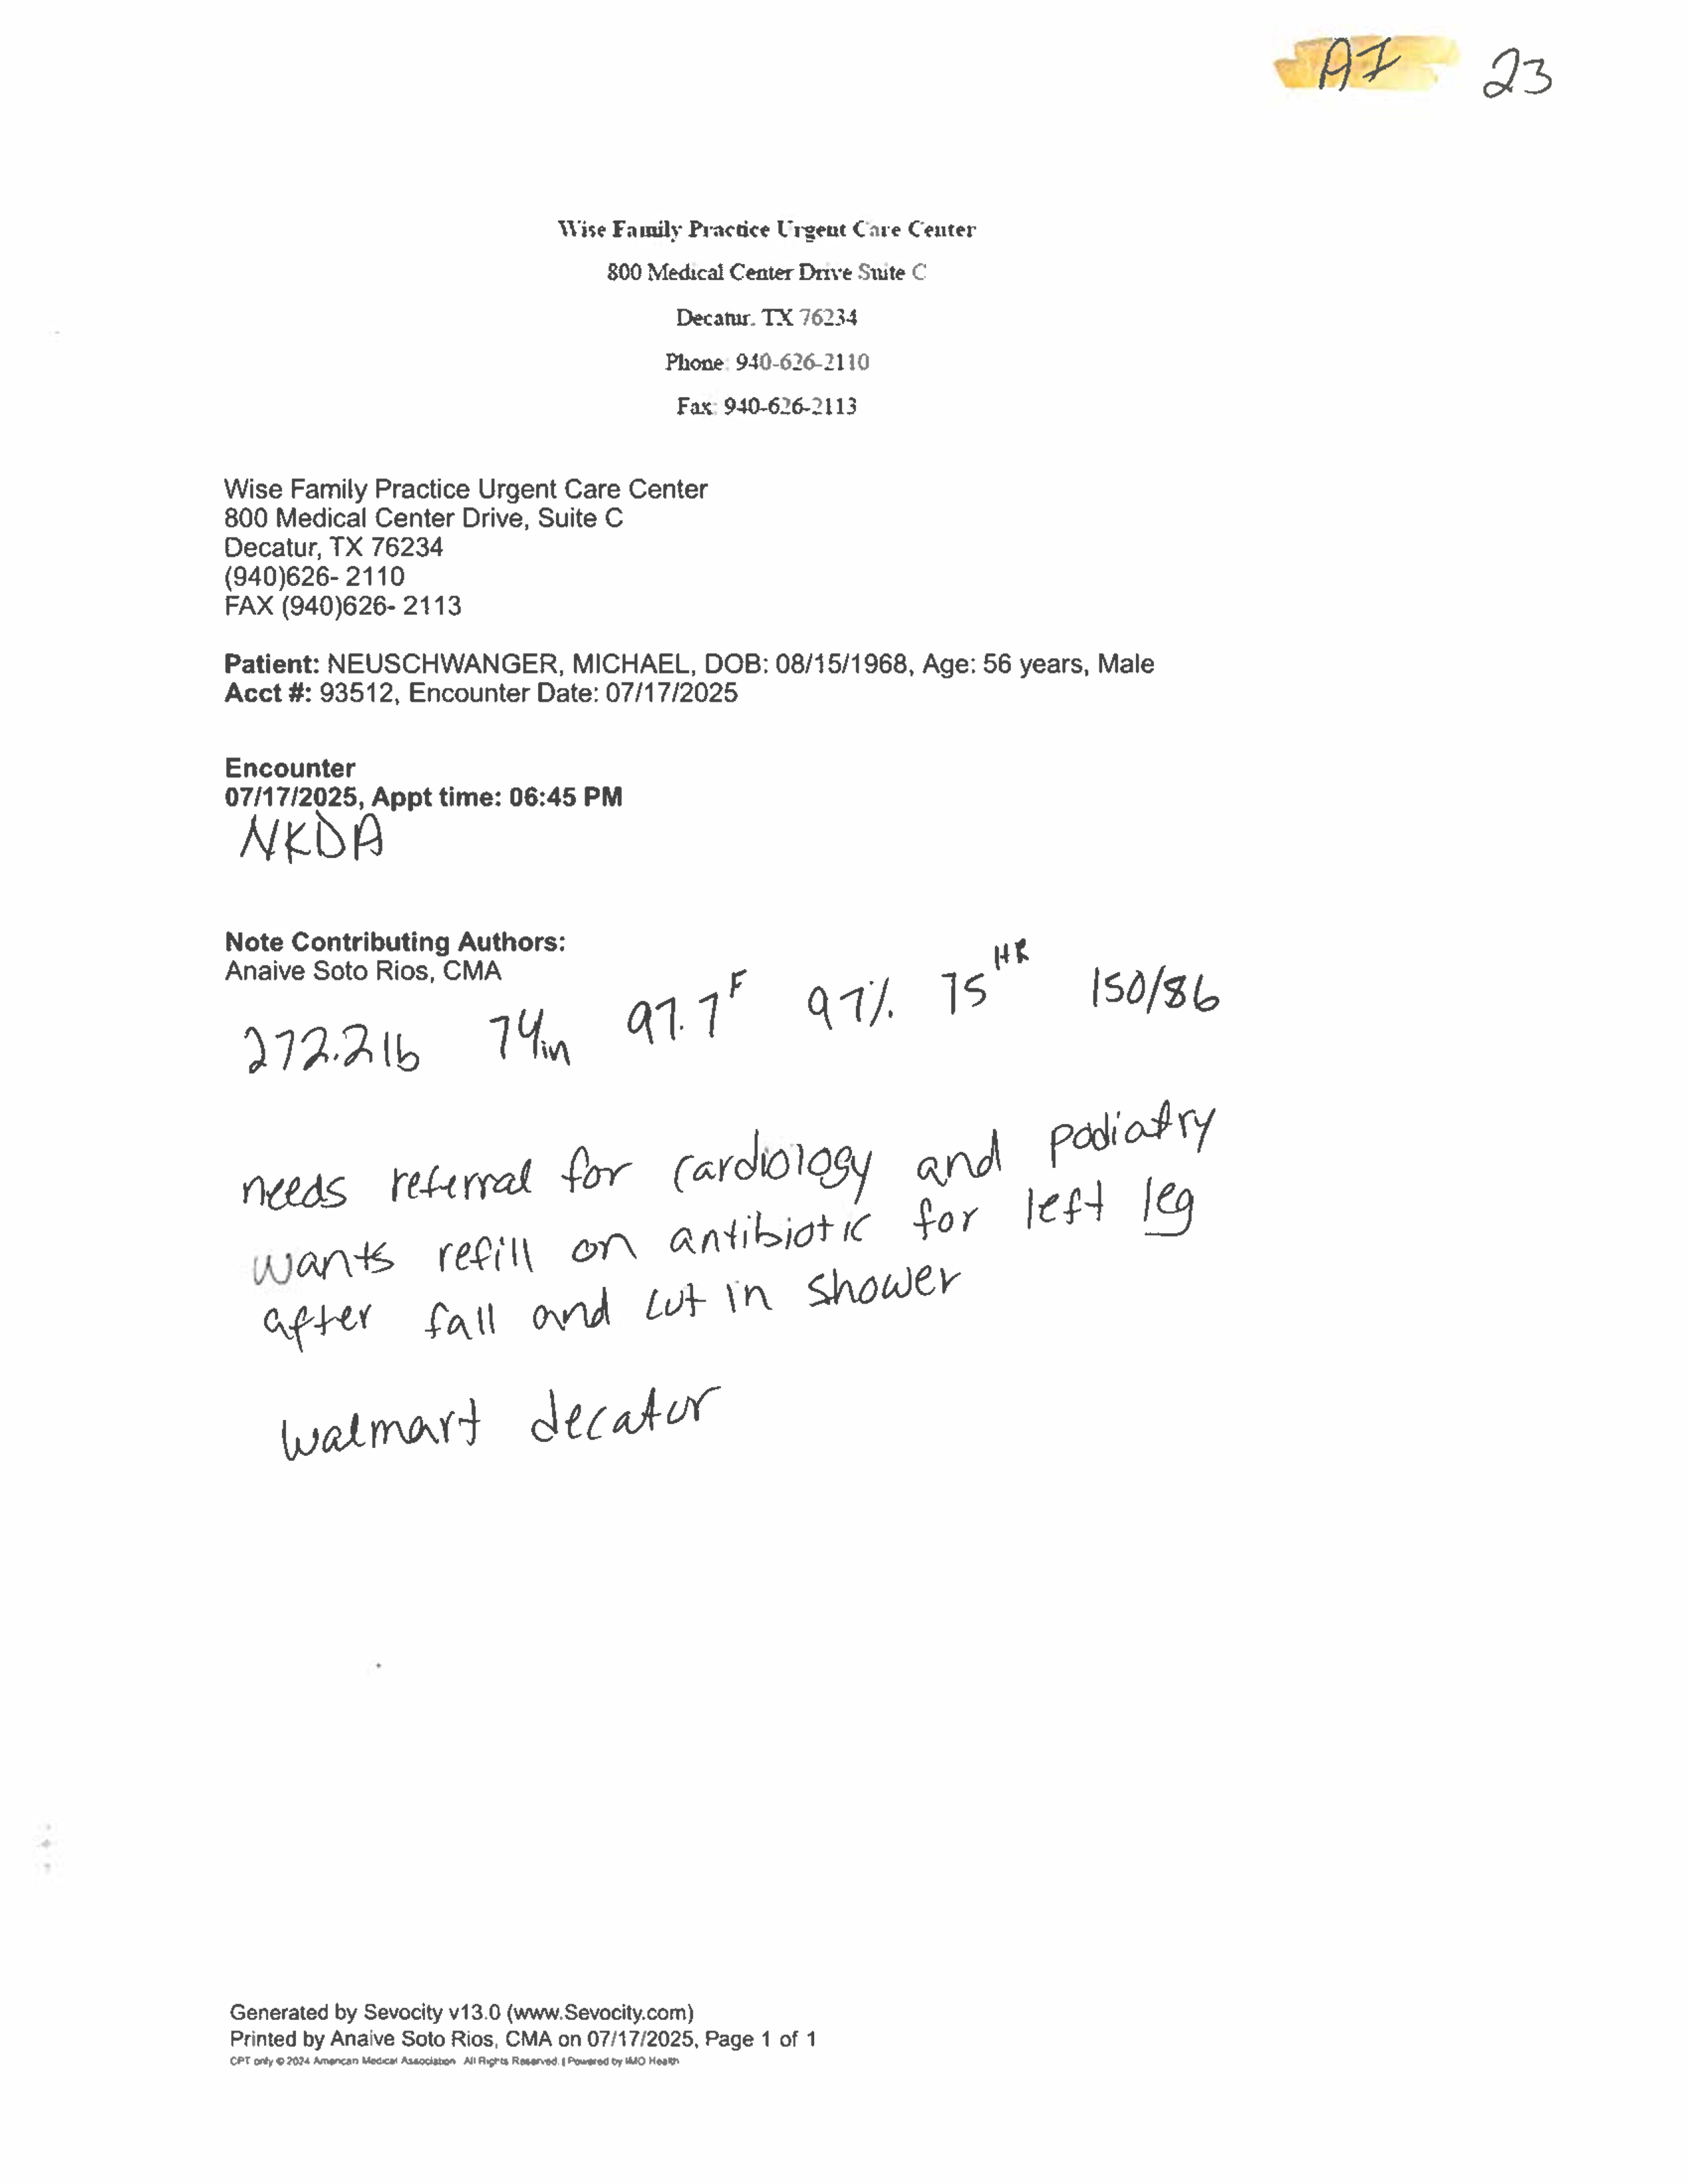 AI 23
Wise Family Practice Urgent Care Center
800 Medical Center Drive Suite C
Decatur, TX 76234
Phone: 940-626-2110
Fax: 940-626-2113
Wise Family Practice Urgent Care Center
800 Medical Center Drive, Suite C
Decatur, TX 76234
(940)626- 2110
FAX (940)626- 2113
Patient: NEUSCHWANGER, MICHAEL, DOB: 08/15/1968, Age: 56 years, Male
Acct #: 93512, Encounter Date: 07/17/2025
Encounter
07/17/2025, Appt time: 06:45 PM
NKDA
Note Contributing Authors:
Anaive Soto Rios, CMA
272.2lb 74in 97.7F 97% 75HR 150/86
needs referral for cardiology and podiatry
wants refill on antibiotic for left leg
after fall and cut in shower
walmart decatur
Generated by Sevocity v13.0 (www.Sevocity.com)
Printed by Anaive Soto Rios, CMA on 07/17/2025, Page 1 of 1
CPT only © 2024 American Medical Association All Rights Reserved. | Powered by IMO Health